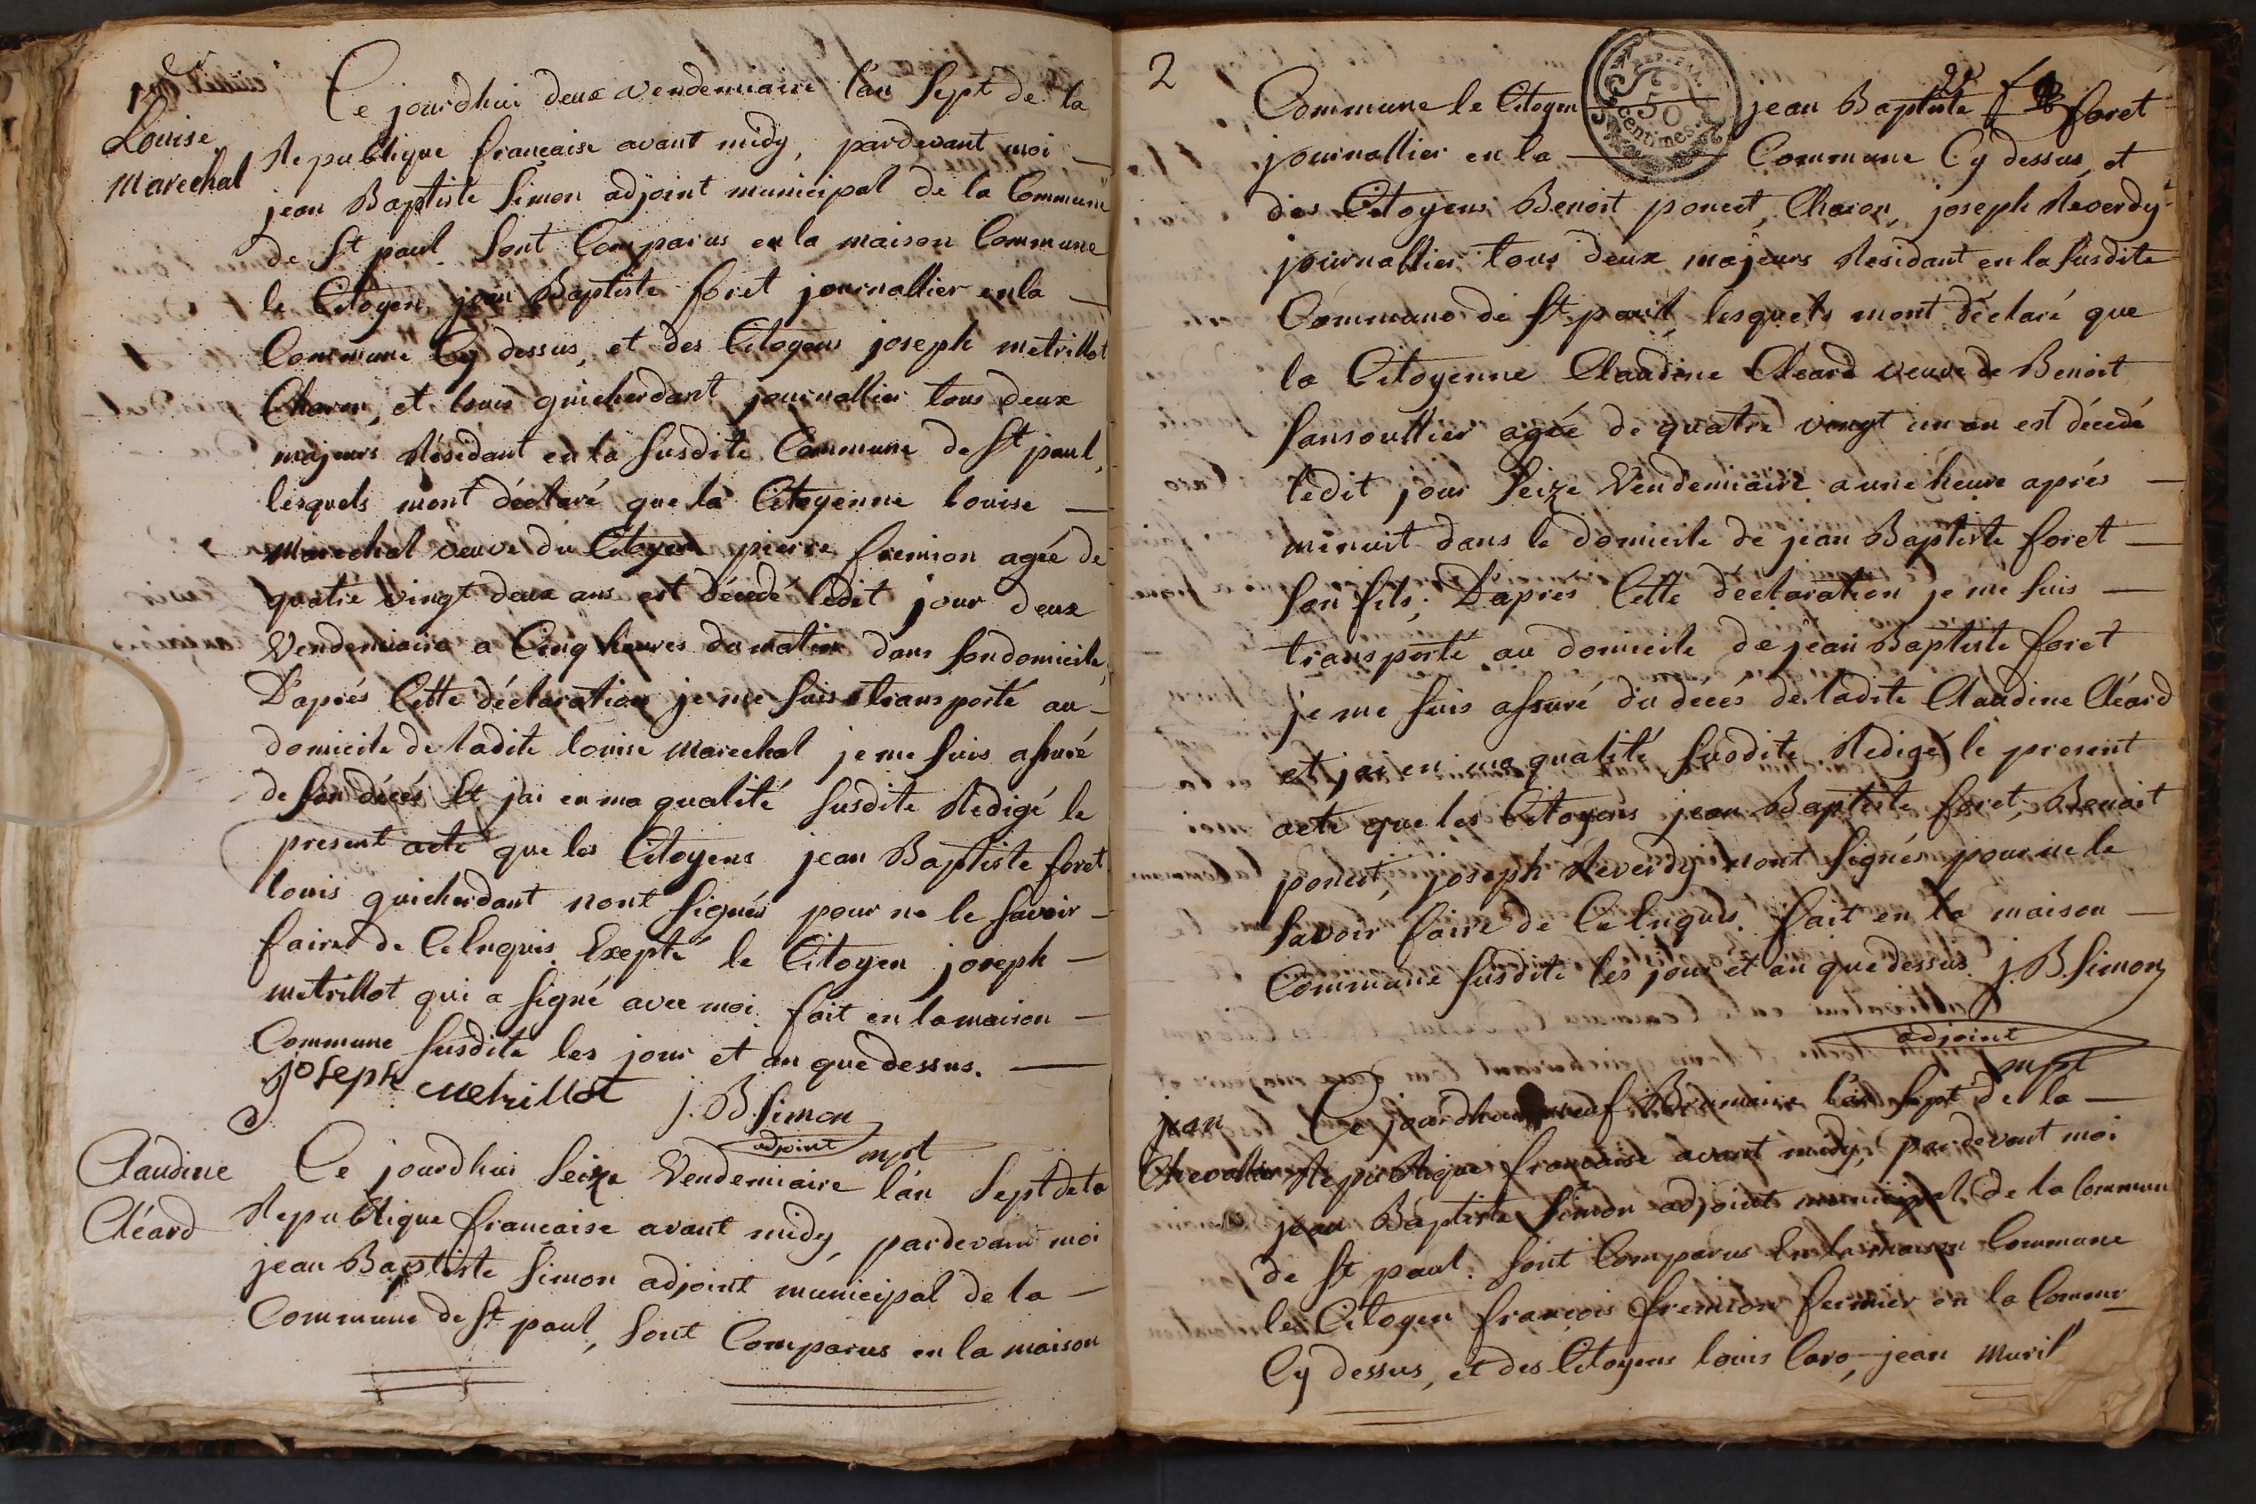 1
Louise
Marechal
Ce jourdhui deux vendemiaire l'an Sept de la
Republique française avant midy, pardevant moi
jean Baptiste Simon adjoint municipal de la Commune
de St paul Sont Comparus en la maison Commune
le Citoyen jean Baptiste foret journallier en la
Commune Cy dessus, et des Citoyens joseph metrillot
Charon, et louis guicherdant journallier tous deux
majeurs Résidant en la susdite Commune de St paul,
lesquels mont déclaré que la Citoyenne louise
Marechal veuve du Citoyen pierre fremion agée de
quatre vingt deux ans est décédé ledit jour deux
Vendemiaire a Cinq heures du matin dans son domicile,
D'aprés Cette déclaration je me suis transporté au
domicile de ladite louise Marechal je me suis assuré
de son décés Et jai en ma qualité susdite Redigé le
present acte que les Citoyens jean Baptiste foret
louis guicherdant nont Signés pour ne le savoir
faire de Ce Enquis. Exepté le Citoyen joseph
metrillot qui a signé avec moi fait en la maison
Commune susdite les jour et an que dessus.
joseph metrillot
j. B. Simon
adjoint
mpt
Claudine
Cléard
Ce jourdhui Seize Vendemiaire l'an Sept de la
Republique francaise avant midy, pardevant moi
jean Baptiste Simon adjoint municipal de la
Commune de St paul, Sont Comparus en la maison
2
REP. FRA.
50
Centimes
Commune le Citoyen jean Baptiste foret
journallier en la Commune Cy dessus, et
des Citoyens Benoit poncet, Charon, joseph Reverdy
journallier tous deux majeurs Residant en la susdite
Commune de St paul, lesquels mont déclaré que
la Citoyenne Claudine Cleard veuve de Benoit
Sansoullier agée de quatre vingt un an est décédé
ledit jour Seize Vendemiaire a une heure aprés
minuit dans le domicile de jean Baptiste foret
son fils; D'aprés Cette déclaration je me suis
transporté au domicile de jean Baptiste foret
je me suis assuré du décés de ladite Claudine Cléard
et jai en ma qualité susdite Redigé le present
acte que les Citoyens jean Baptiste foret, Benoit
poncet, joseph Reverdy nont Signés pour ne le
savoir faire de Ce Enquis. fait en la maison
Commune susdite les jour et an que dessus. j. B. Simon
adjoint
mpt
jean
Chevallier
Ce jourdhui neuf Brumaire l'an Sept de la
Republique francaise avant midy, pardevant moi
jean Baptiste Simon adjoint municipal de la Commune
de St paul. Sont Comparus En la maison Commune
le Citoyen françois fremion fermier en la Commune
Cy dessus, et des Citoyens louis Caro, jean muril